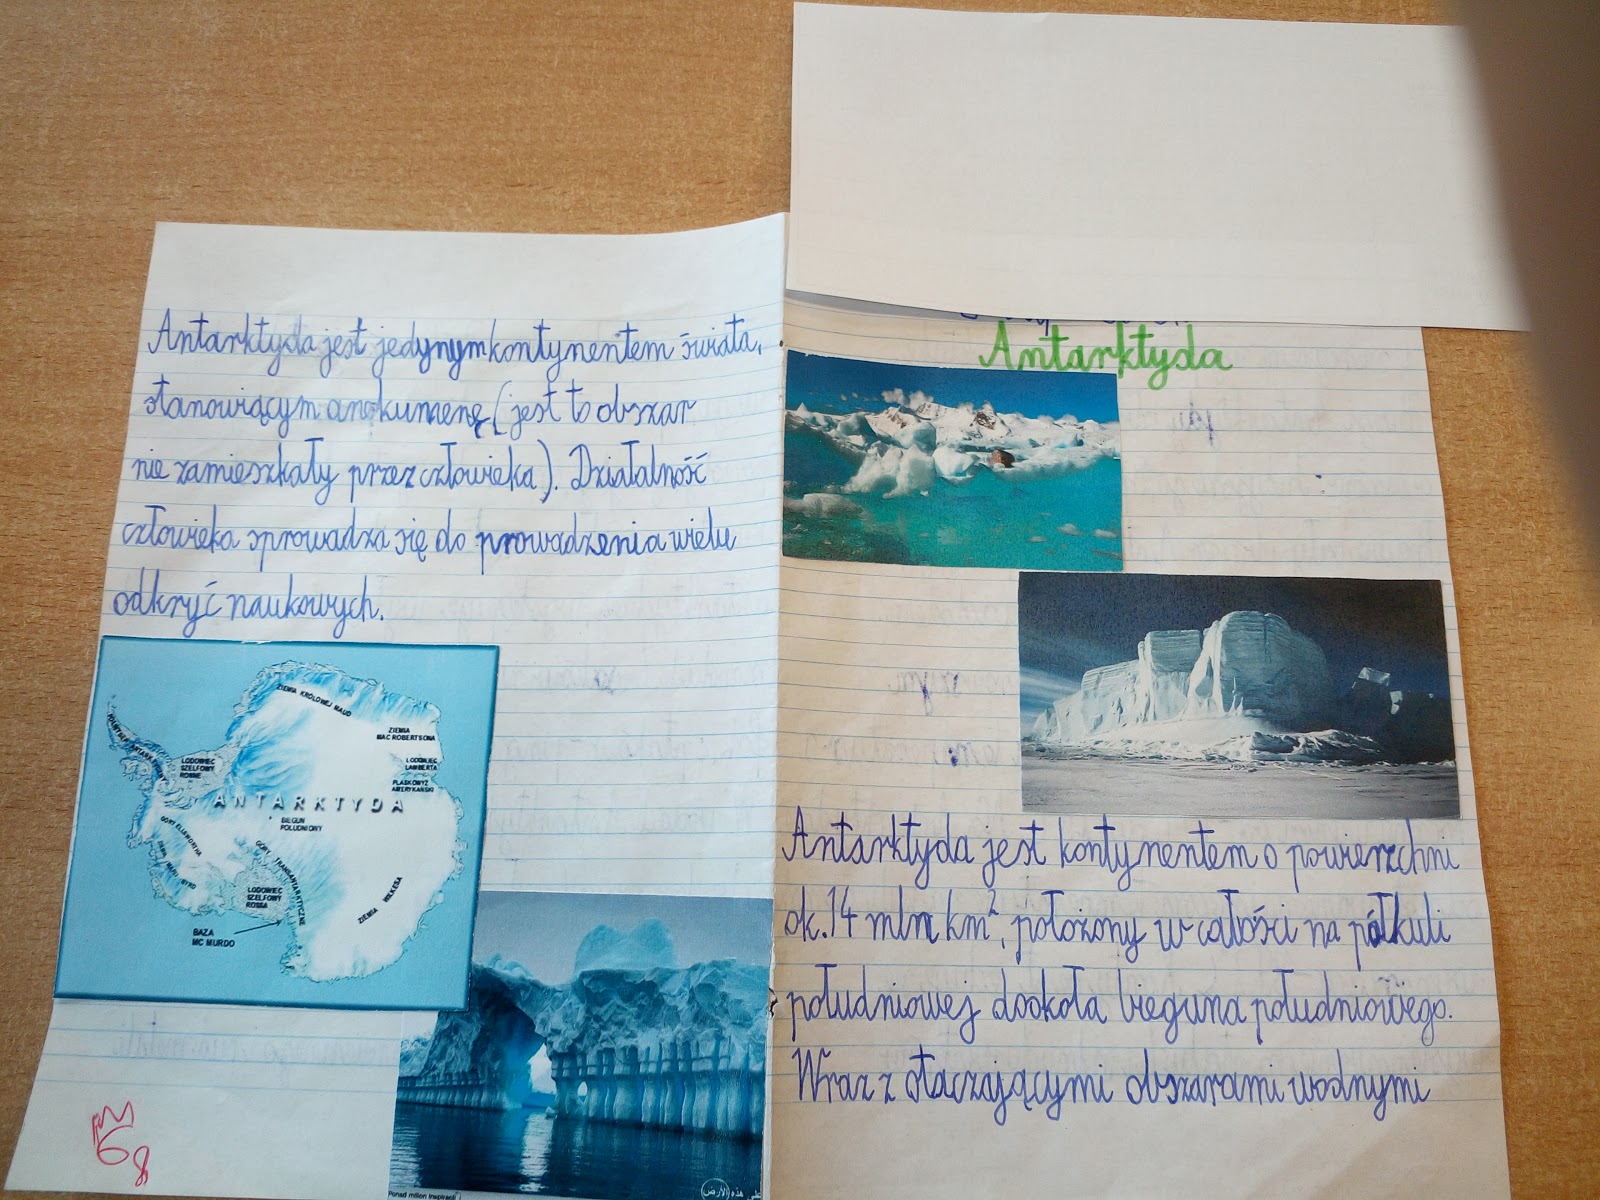 Antarktyda jest jedynym kontynentem świata,
stanowiącym anekumenę (jest to obszar
nie zamieszkały przez człowieka). Działalność
człowieka sprowadza się do prowadzenia wielu
odkryć naukowych.
ZIEMIA KRÓLOWEJ MAUD
ZIEMIA
MAC ROBERTSONA
PÓŁWYSEP ANTARKTYCZNY
LODOWIEC
SZELFOWY
RONNE
LODOWIEC
LAMBERTA
PŁASKOWYŻ
AMERYKAŃSKI
ANTARKTYDA
BIEGUN
POŁUDNIOWY
GÓRY ELLSWORTHA
ZIEMIA MARII BYRD
GÓRY TRANSANTARKTYCZNE
LODOWIEC
SZELFOWY
ROSSA
ZIEMIA WILKESA
BAZA
MC MURDO
Ponad milion inspiracji
على هذه الأرض
6
8
Antarktyda
Antarktyda jest kontynentem o powierzchni
ok. 14 mln km², położony w całości na półkuli
południowej dookoła bieguna południowego.
Wraz z otaczającymi obszarami wodnymi